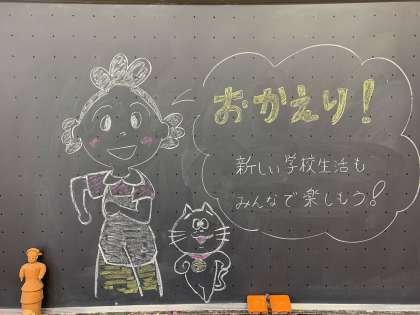 おかえり！
新しい学校生活も
みんなで楽しもう！